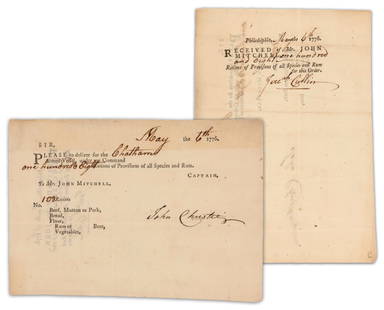 Philadelphia, 6th 1776.
RECEIVED of Mr. JOHN
MITCHELL one hundred
and Eight
Rations of Provisions of all Species and Rum
for this Order.
Collin
May the 6th 1776.
SIR,
PLEASE to deliver for the Chatham
Command
one hundred & Eight Rations of Provisions of all Species and Rum.
CAPTAIN,
To Mr. JOHN MITCHELL.
108 Rations
No.
Beef, Mutton or Pork,
Bread,
Flour,
Rum or Beer,
Vegetables,
John Christie